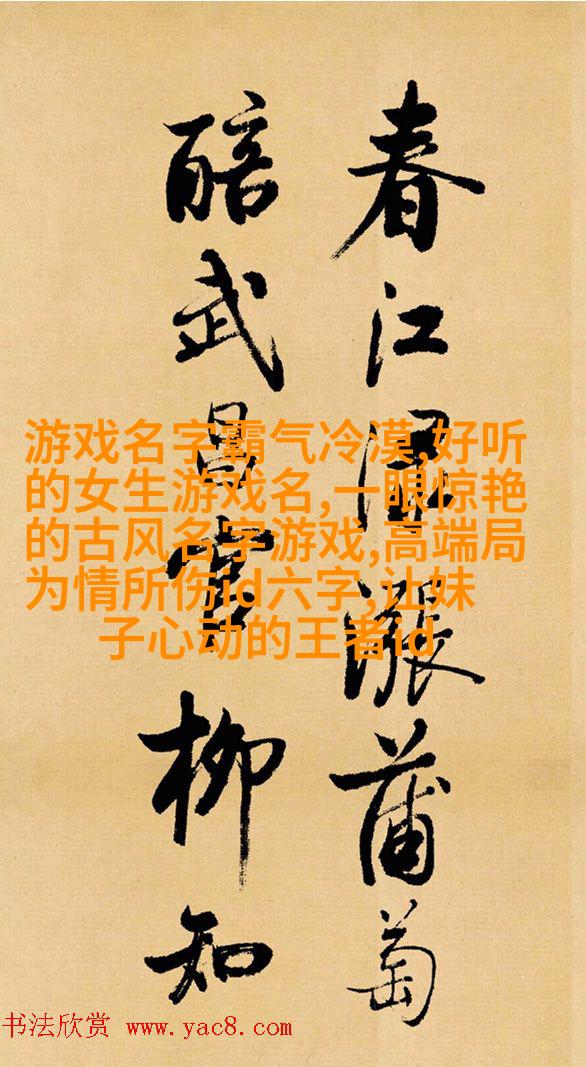 春江漲蒲萄
醅武昌官柳知
游戏名字霸气冷漠,好听
的女生游戏名,一眼惊艳
的古风名字游戏,高端局
为情所伤id六字,让妹
子心动的王者id
书法欣赏 www.yac8.com